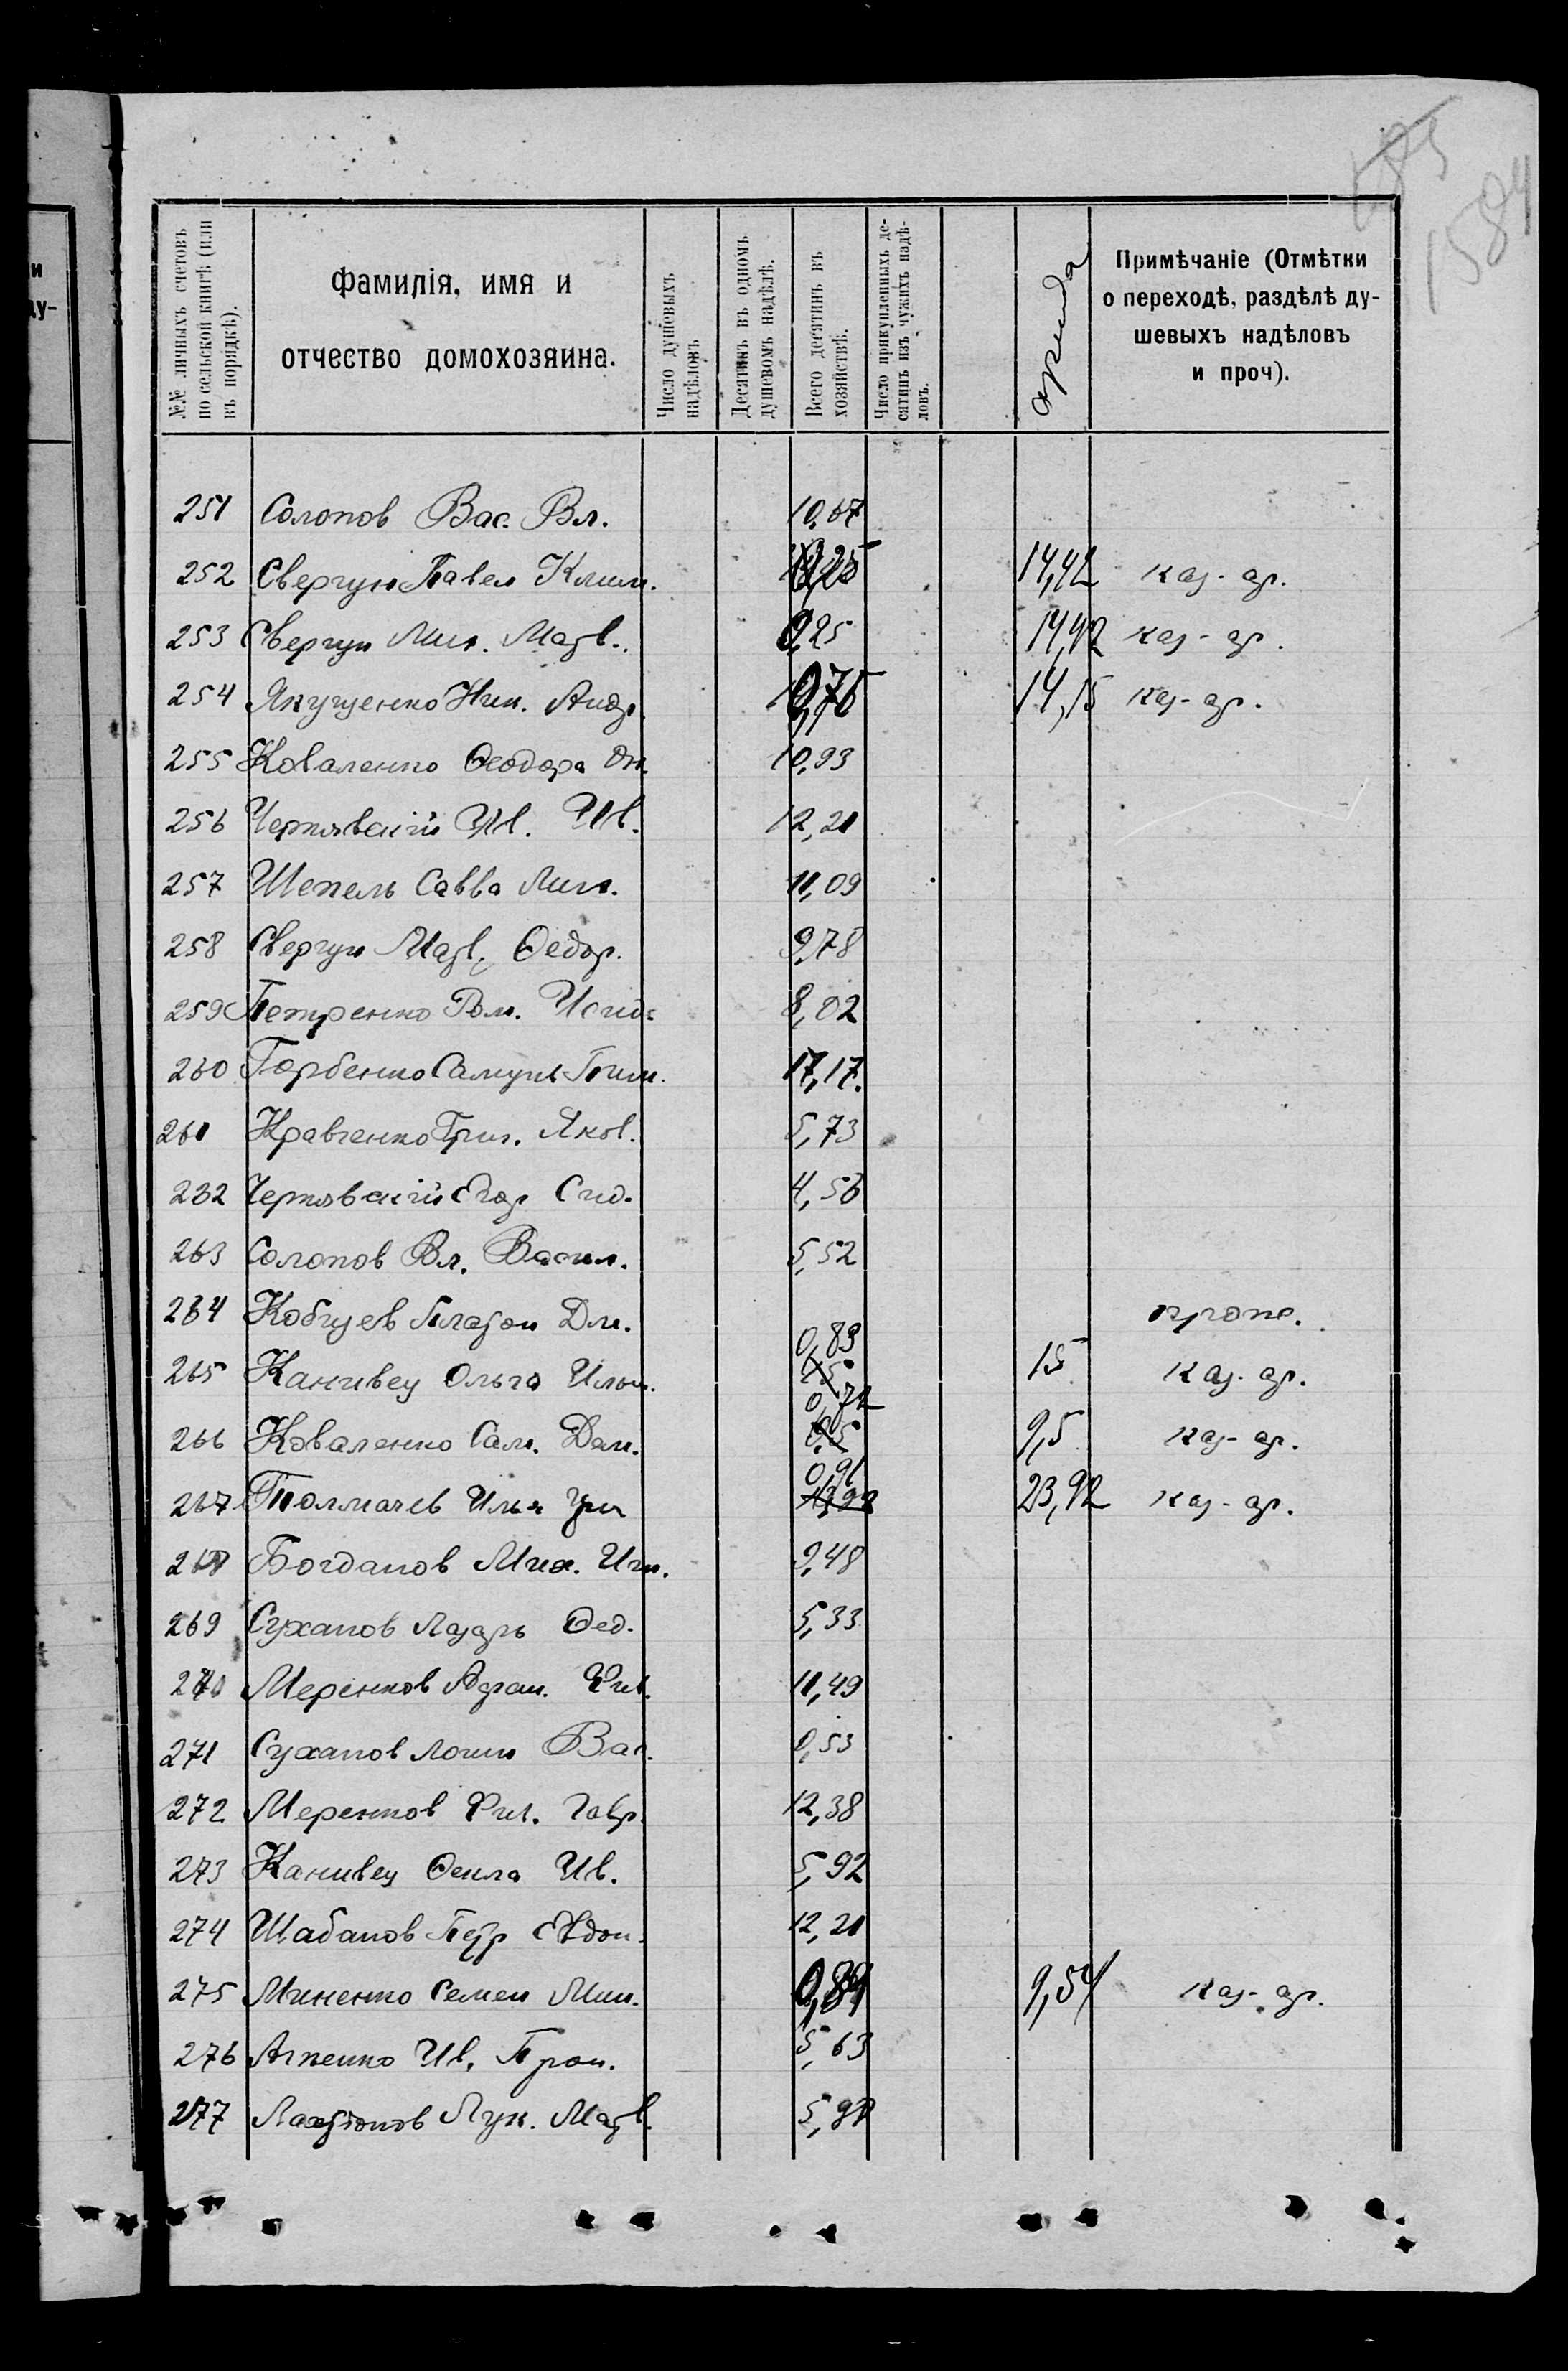 1584
№№ личныхъ счетовъ по сельской книгѣ (или въ порядкѣ).
Фамилія, имя и отчество домохозяина.
Число душевыхъ надѣловъ
Десятинъ въ одномъ душевомъ надѣлѣ.
Всего десятинъ въ хозяйствѣ.
Число прикупленныхъ десятинъ изъ чужихъ надѣловъ.
аренда
Примѣчаніе (Отмѣтки о переходѣ, раздѣлѣ душевыхъ надѣловъ и проч).
251 Солопов Вас. Вл. 10,67
252 Свергун Павел Клим. 0,25 14,42 каз-ар.
253 Свергун Мих. Матв. 0,25 14,92 каз-ар.
254 Якущенко Ник. Андр. 0,76 14,15 каз-ар.
255 Коваленко Ѳеодора 10,93
256 Чернявскій Ив. Ив. 12,21
257 Шепель Савва Мих. 11,09
258 Свергун Матв. Ѳедор. 9,78
259 Петренко Ром. Исид. 8,02
260 Горбенко Самуил Тим. 17,17.
261 Кравченко Григ. Яков. 5,73
262 Чернявскій Егор Сид. 4,56
263 Солопов Вл. Васил. 5,52
264 Кобцев Платон Дм. проп.
265 Канивец Ольга Ильи. 0,89 15 каз-ар.
266 Коваленко Сам. Дем. 0,72 9,5 каз-ар.
267 Толмачев Илья 0,91 23,92 каз-ар.
268 Богданов Мих. Игн. 9,48
269 Суханов Лазарь Ѳед. 5,33
270 Меренков Адриан. Фил. 11,49
271 Суханов Логин Вас. 0,53
272 Меренков Фил. Гавр. 12,38
273 Канивец Ѳекла Ив. 5,92
274 Шабанов Петр Евдок. 12,21
275 Миненко Семен Мих. 0,89 9,54 каз-ар.
276 Агпенко Ив. Прок. 5,63
277 Лук. Матв. 5,97